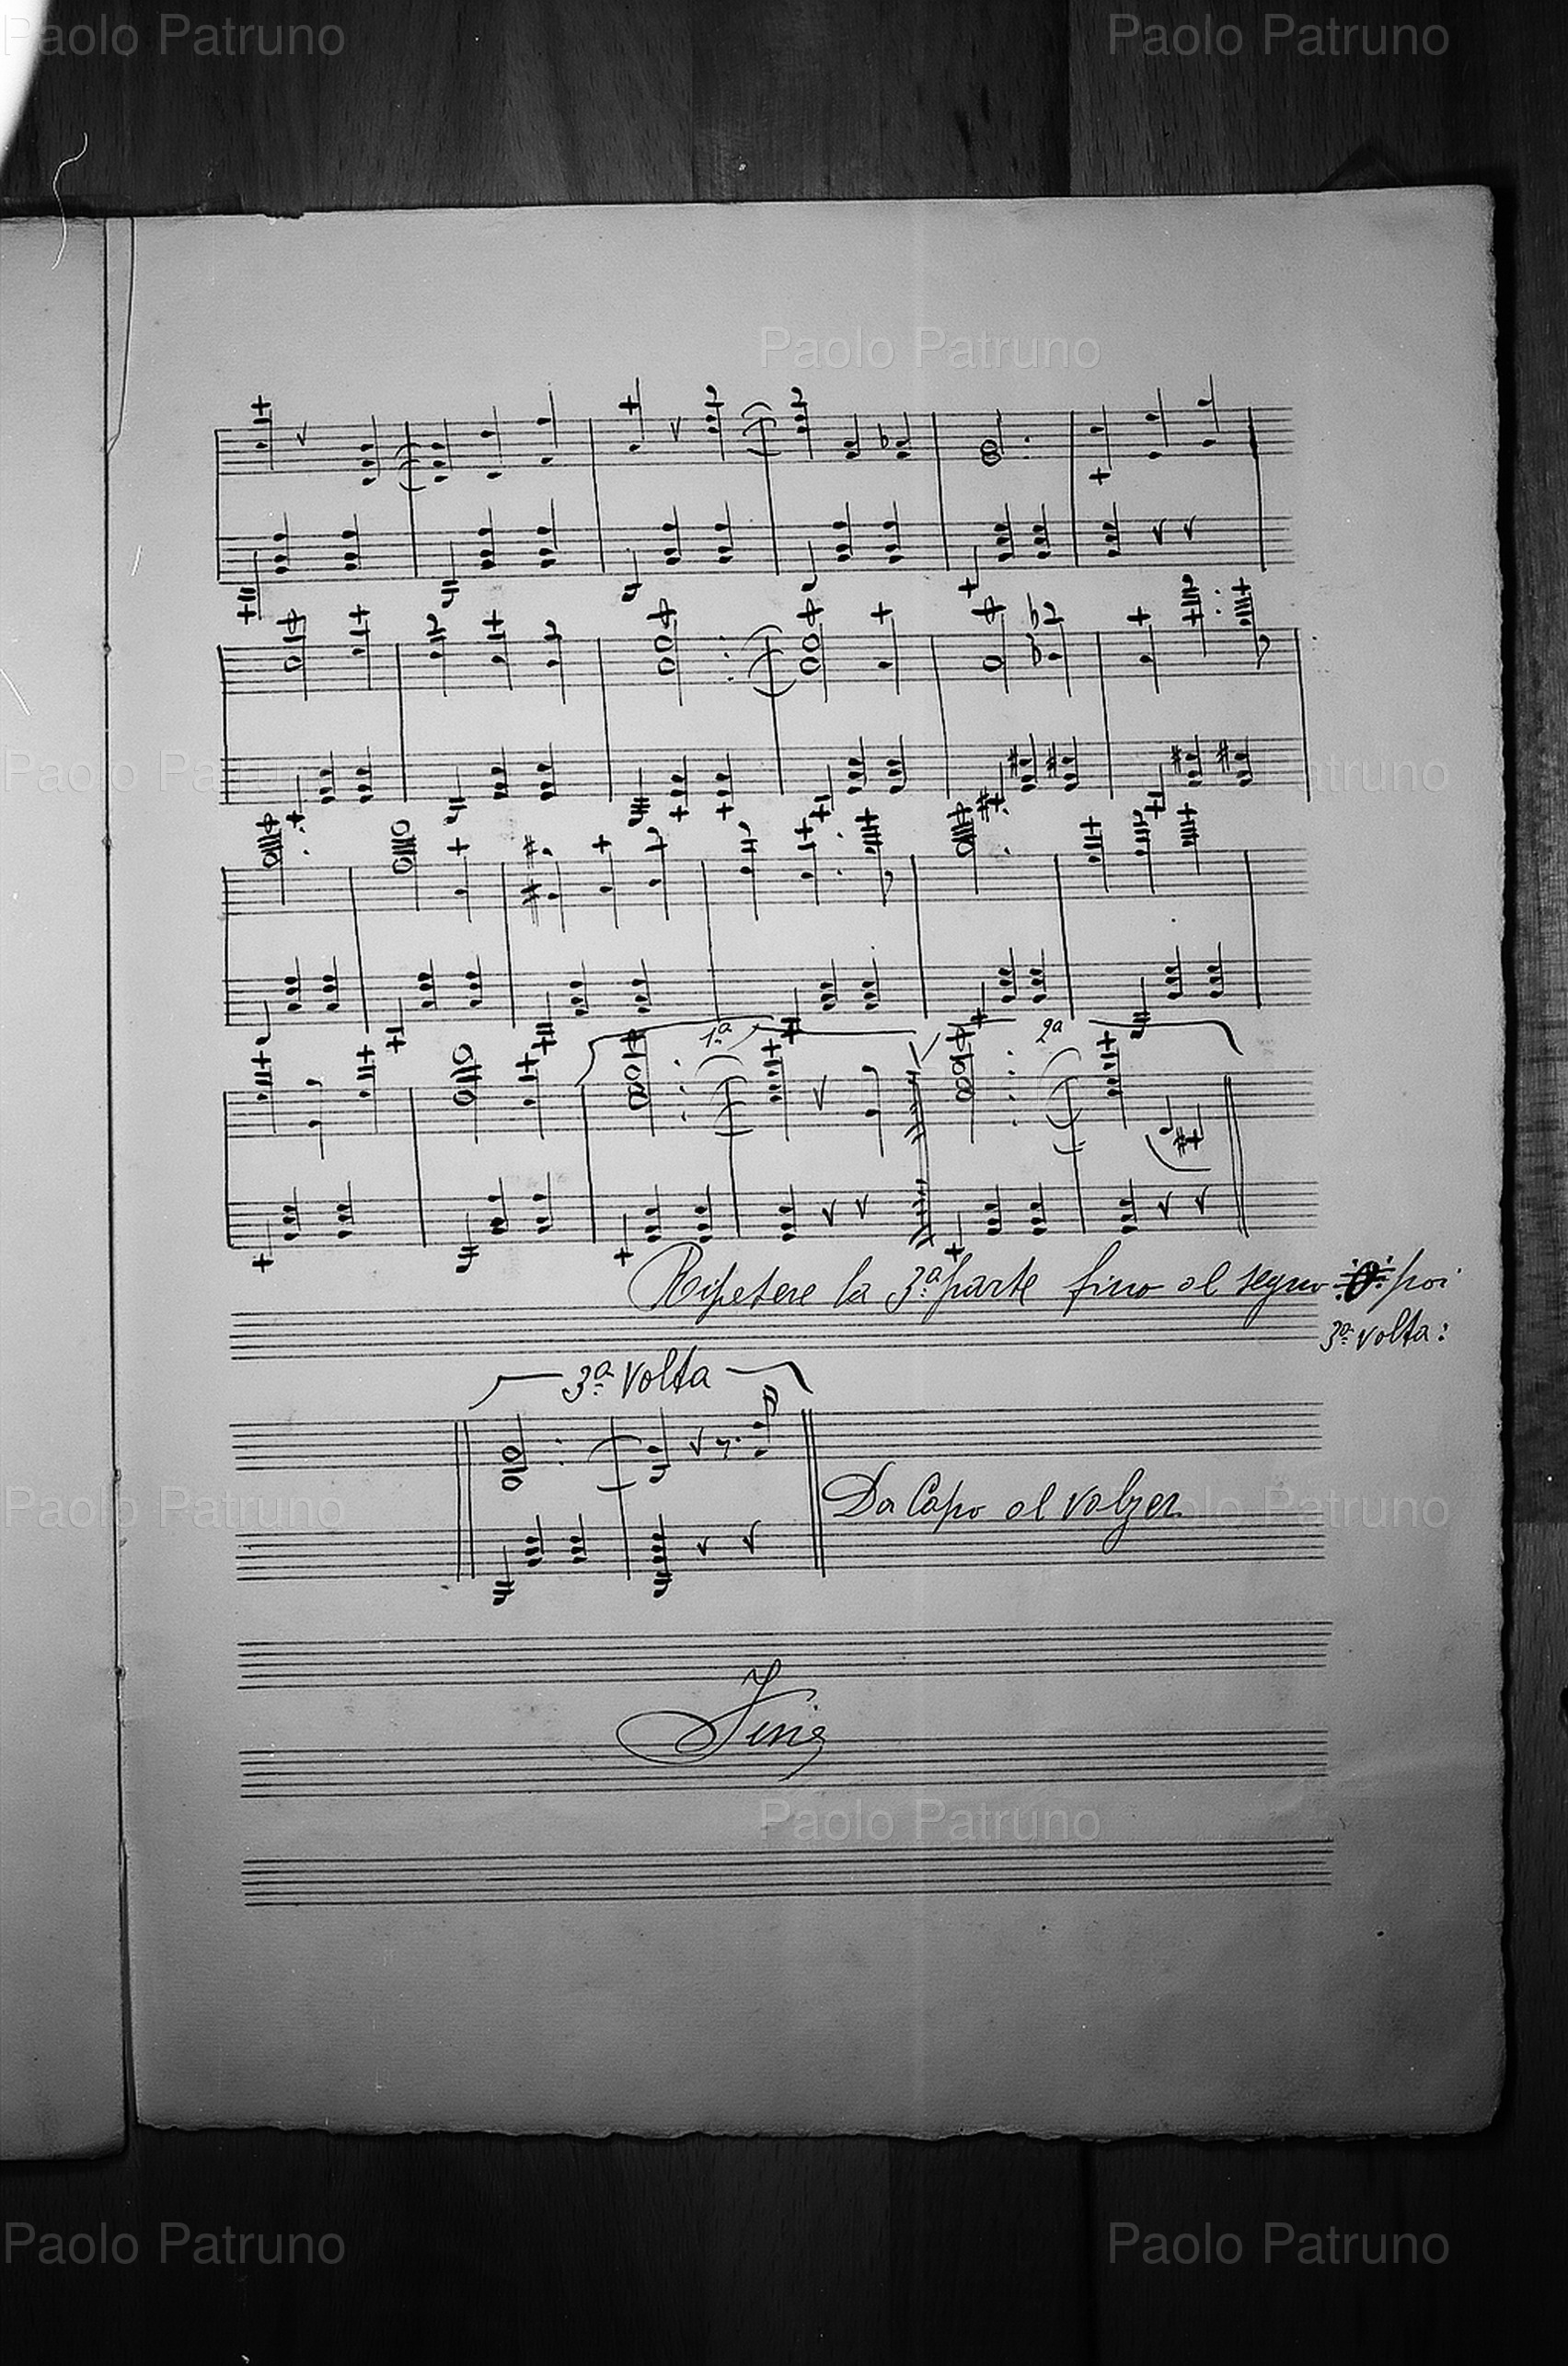 Paolo Patruno Paolo Patruno
Paolo Patruno
Paolo Patruno Paolo Patruno
1ª 2ª
Paolo Patruno
Ripetere la 3ª parte fino al segno poi
3ª volta:
3ª Volta
Da Capo al valzer
Paolo Patruno Paolo Patruno
Fine
Paolo Patruno
Paolo Patruno Paolo Patruno